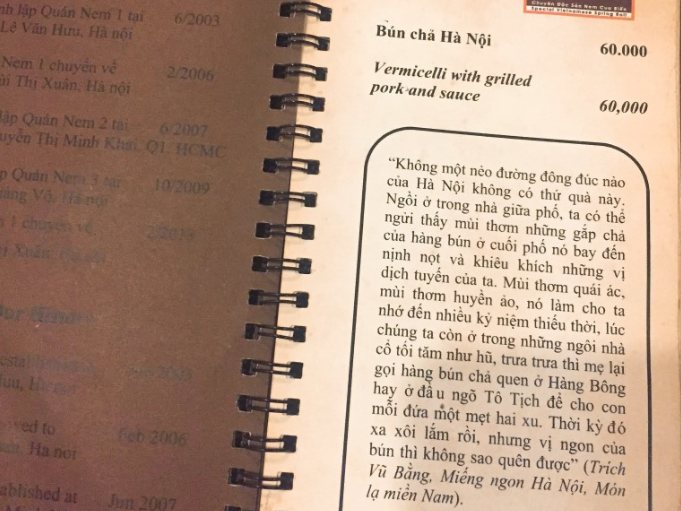 nh lập Quán Nem 1 tại 6/2003
Lê Văn Hưu, Hà nội
Nem 1 chuyển về 2/2006
ùi Thị Xuân, Hà nội
lập Quán Nem 2 tại 6/2007
uyễn Thị Minh Khai, Q1, HCMC
p Quán Nem 3 tại 10/2009
ảng Võ, Hà nội
1 chuyển về
ị Xuân, Hà nội
established
ưu, Ha noi
oved to Feb 2006
Ha noi
ablished at Jun 2007
Chuyên Đặc Sản Nem Cua Biển
Special Vietnamese Spring Roll
Bún chả Hà Nội 60.000
Vermicelli with grilled
pork and sauce 60,000
“Không một nẻo đường đông đúc nào
của Hà Nội không có thứ quà này.
Ngồi ở trong nhà giữa phố, ta có thể
ngửi thấy mùi thơm những gắp chả
của hàng bún ở cuối phố nó bay đến
nịnh nọt và khiêu khích những vị
dịch tuyến của ta. Mùi thơm quái ác,
mùi thơm huyền ảo, nó làm cho ta
nhớ đến nhiều kỷ niệm thiếu thời, lúc
chúng ta còn ở trong những ngôi nhà
cổ tối tăm như hũ, trưa trưa thì mẹ lại
gọi hàng bún chả quen ở Hàng Bông
hay ở đầu ngõ Tô Tịch để cho con
mỗi đứa một mẹt hai xu. Thời kỳ đó
xa xôi lắm rồi, nhưng vị ngon của
bún thì không sao quên được” (Trích
Vũ Bằng, Miếng ngon Hà Nội, Món
lạ miền Nam).